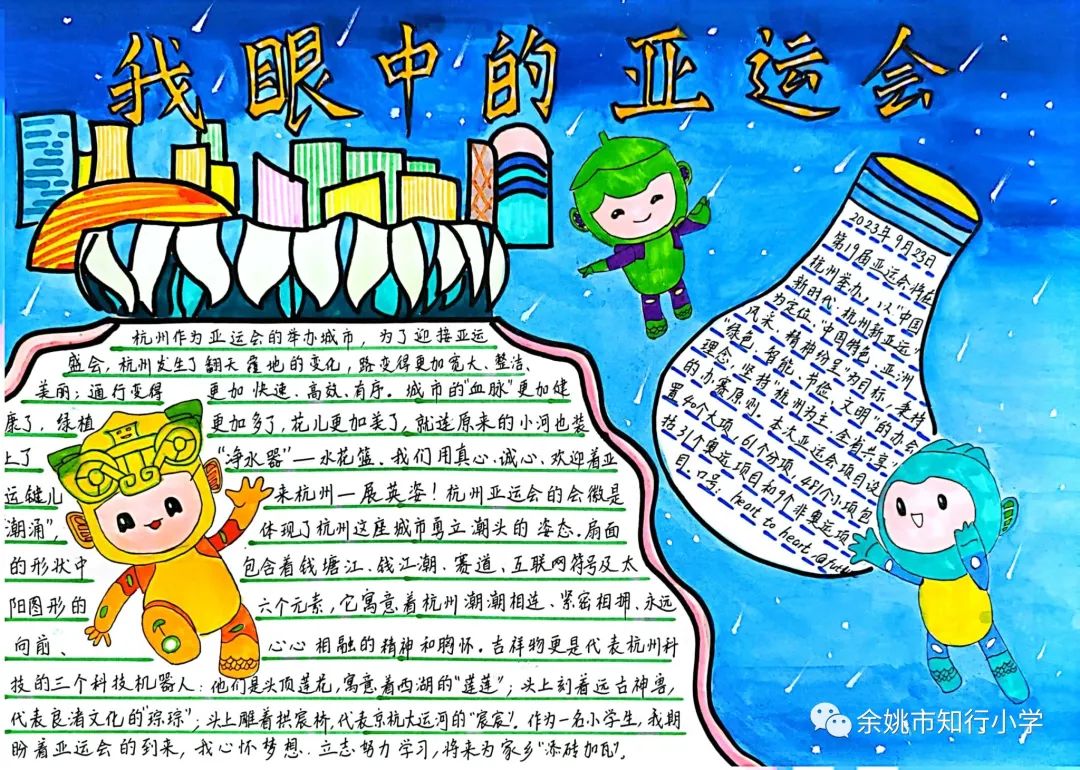 我眼中的亚运会
杭州作为亚运会的举办城市,为了迎接亚运
盛会,杭州发生了翻天覆地的变化,路变得更加宽大、整洁、
美丽;通行变得更加快速、高效、有序。城市的"血脉"更加健
康了,绿植更加多了,花儿更加美了,就连原来的小河也装
上了"净水器"—水花篮、我们用真心、诚心、欢迎着亚
运健儿来杭州一展英姿!杭州亚运会的会徽是
潮涌",体现了杭州这座城市勇立潮头的姿态.扇面
的形状中包含着钱塘江、钱江潮、赛道、互联网符号及太
阳图形的六个元素,它寓意着杭州潮潮相连、紧密相拥、永远
向前、心心相融的精神和胸怀。吉祥物更是代表杭州科
技的三个科技机器人:他们是头顶莲花,寓意着西湖的"莲莲";头上刻着远古神兽,
代表良渚文化的"琮琮";头上雕着拱宸桥,代表京杭大运河的"宸宸"。作为一名小学生,我期
盼着亚运会的到来,我心怀梦想.立志努力学习,将来为家乡"添砖加瓦"。
2023年9月23日
第19届亚运会将在
杭州举办,以"中国
新时代·杭州新亚运"
为定位,"中国特色、亚洲
风采、精神纷呈"为目标,秉持
"绿色、智能、节俭、文明"的办会
理念,坚持"杭州为主,全省共享"
的办赛原则。本次亚运会项目设
置40个大项,61个分项,481个小项包
括31个奥运项目和9个非奥运项
目。口号:heart to heart,
余姚市知行小学